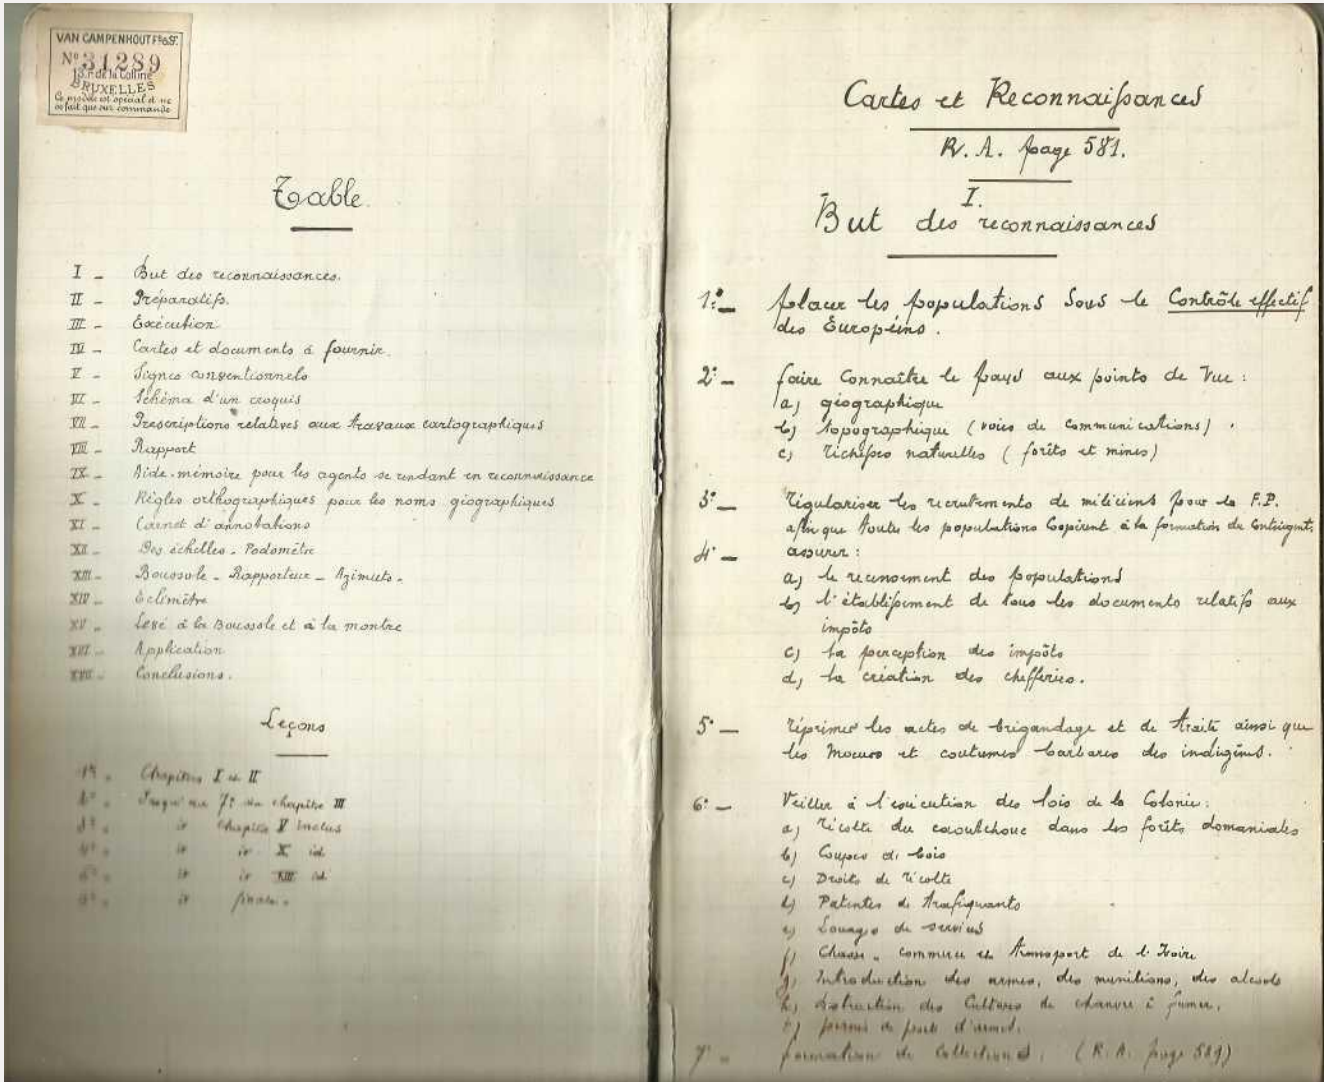 VAN CAMPENHOUT Fs & Sr.
No 31289
13. r. de la Colline
BRUXELLES
Ce modèle est spécial et ne
se fait que sur commande
Table
I - But des reconnaissances.
II - Préparatifs.
III - Exécution
IV - Cartes et documents à fournir.
V - Signes conventionnels
VI - Schéma d'un croquis
VII - Prescriptions relatives aux travaux cartographiques
VIII - Rapport
IX - Aide-mémoire pour les agents se rendant en reconnaissance
X - Règles orthographiques pour les noms géographiques
XI - Carnet d'annotations
XII - Des échelles - Podomètre
XIII - Boussole - Rapporteur - Azimuts -
XIV - Eclimètre
XV - Levé à la Boussole et à la montre
XVI - Application
XVII - Conclusions.
Leçons
Chapitres I et II
Jusqu'au 7° du chapitre III
id chapitre V inclus
id id X id
id id XIII id
id finale.
Cartes et Reconnaissances
R. A. page 581.
I.
But des reconnaissances
1° - placer les populations sous le Contrôle effectif
des Européens.
2° - faire Connaître le pays aux points de vue :
a) géographique
b) topographique (voies de communications).
c) richesses naturelles (forêts et mines)
3° - régulariser les recrutements de miliciens pour la F.P.
afin que toutes les populations coopèrent à la formation du Contingent.
4° - assurer :
a) le recensement des populations
b) l'établissement de tous les documents relatifs aux
impôts
c) la perception des impôts
d) la création des chefferies.
5° - réprimer les actes de brigandage et de traite ainsi que
les moeurs et coutumes barbares des indigènes.
6° - Veiller à l'exécution des lois de la Colonie :
a) récolte du caoutchouc dans les forêts domaniales
b) Coupes de bois
c) Droits de récolte
d) Patentes de trafiquants
e) Louages de services
f) Chasse - commerce et transport de l'Ivoire
g) Introduction des armes, des munitions, des alcools
h) destruction des Cultures de chanvre à fumer.
i) permis de port d'armes.
7° - formation de Collections. (R. A. page 589)